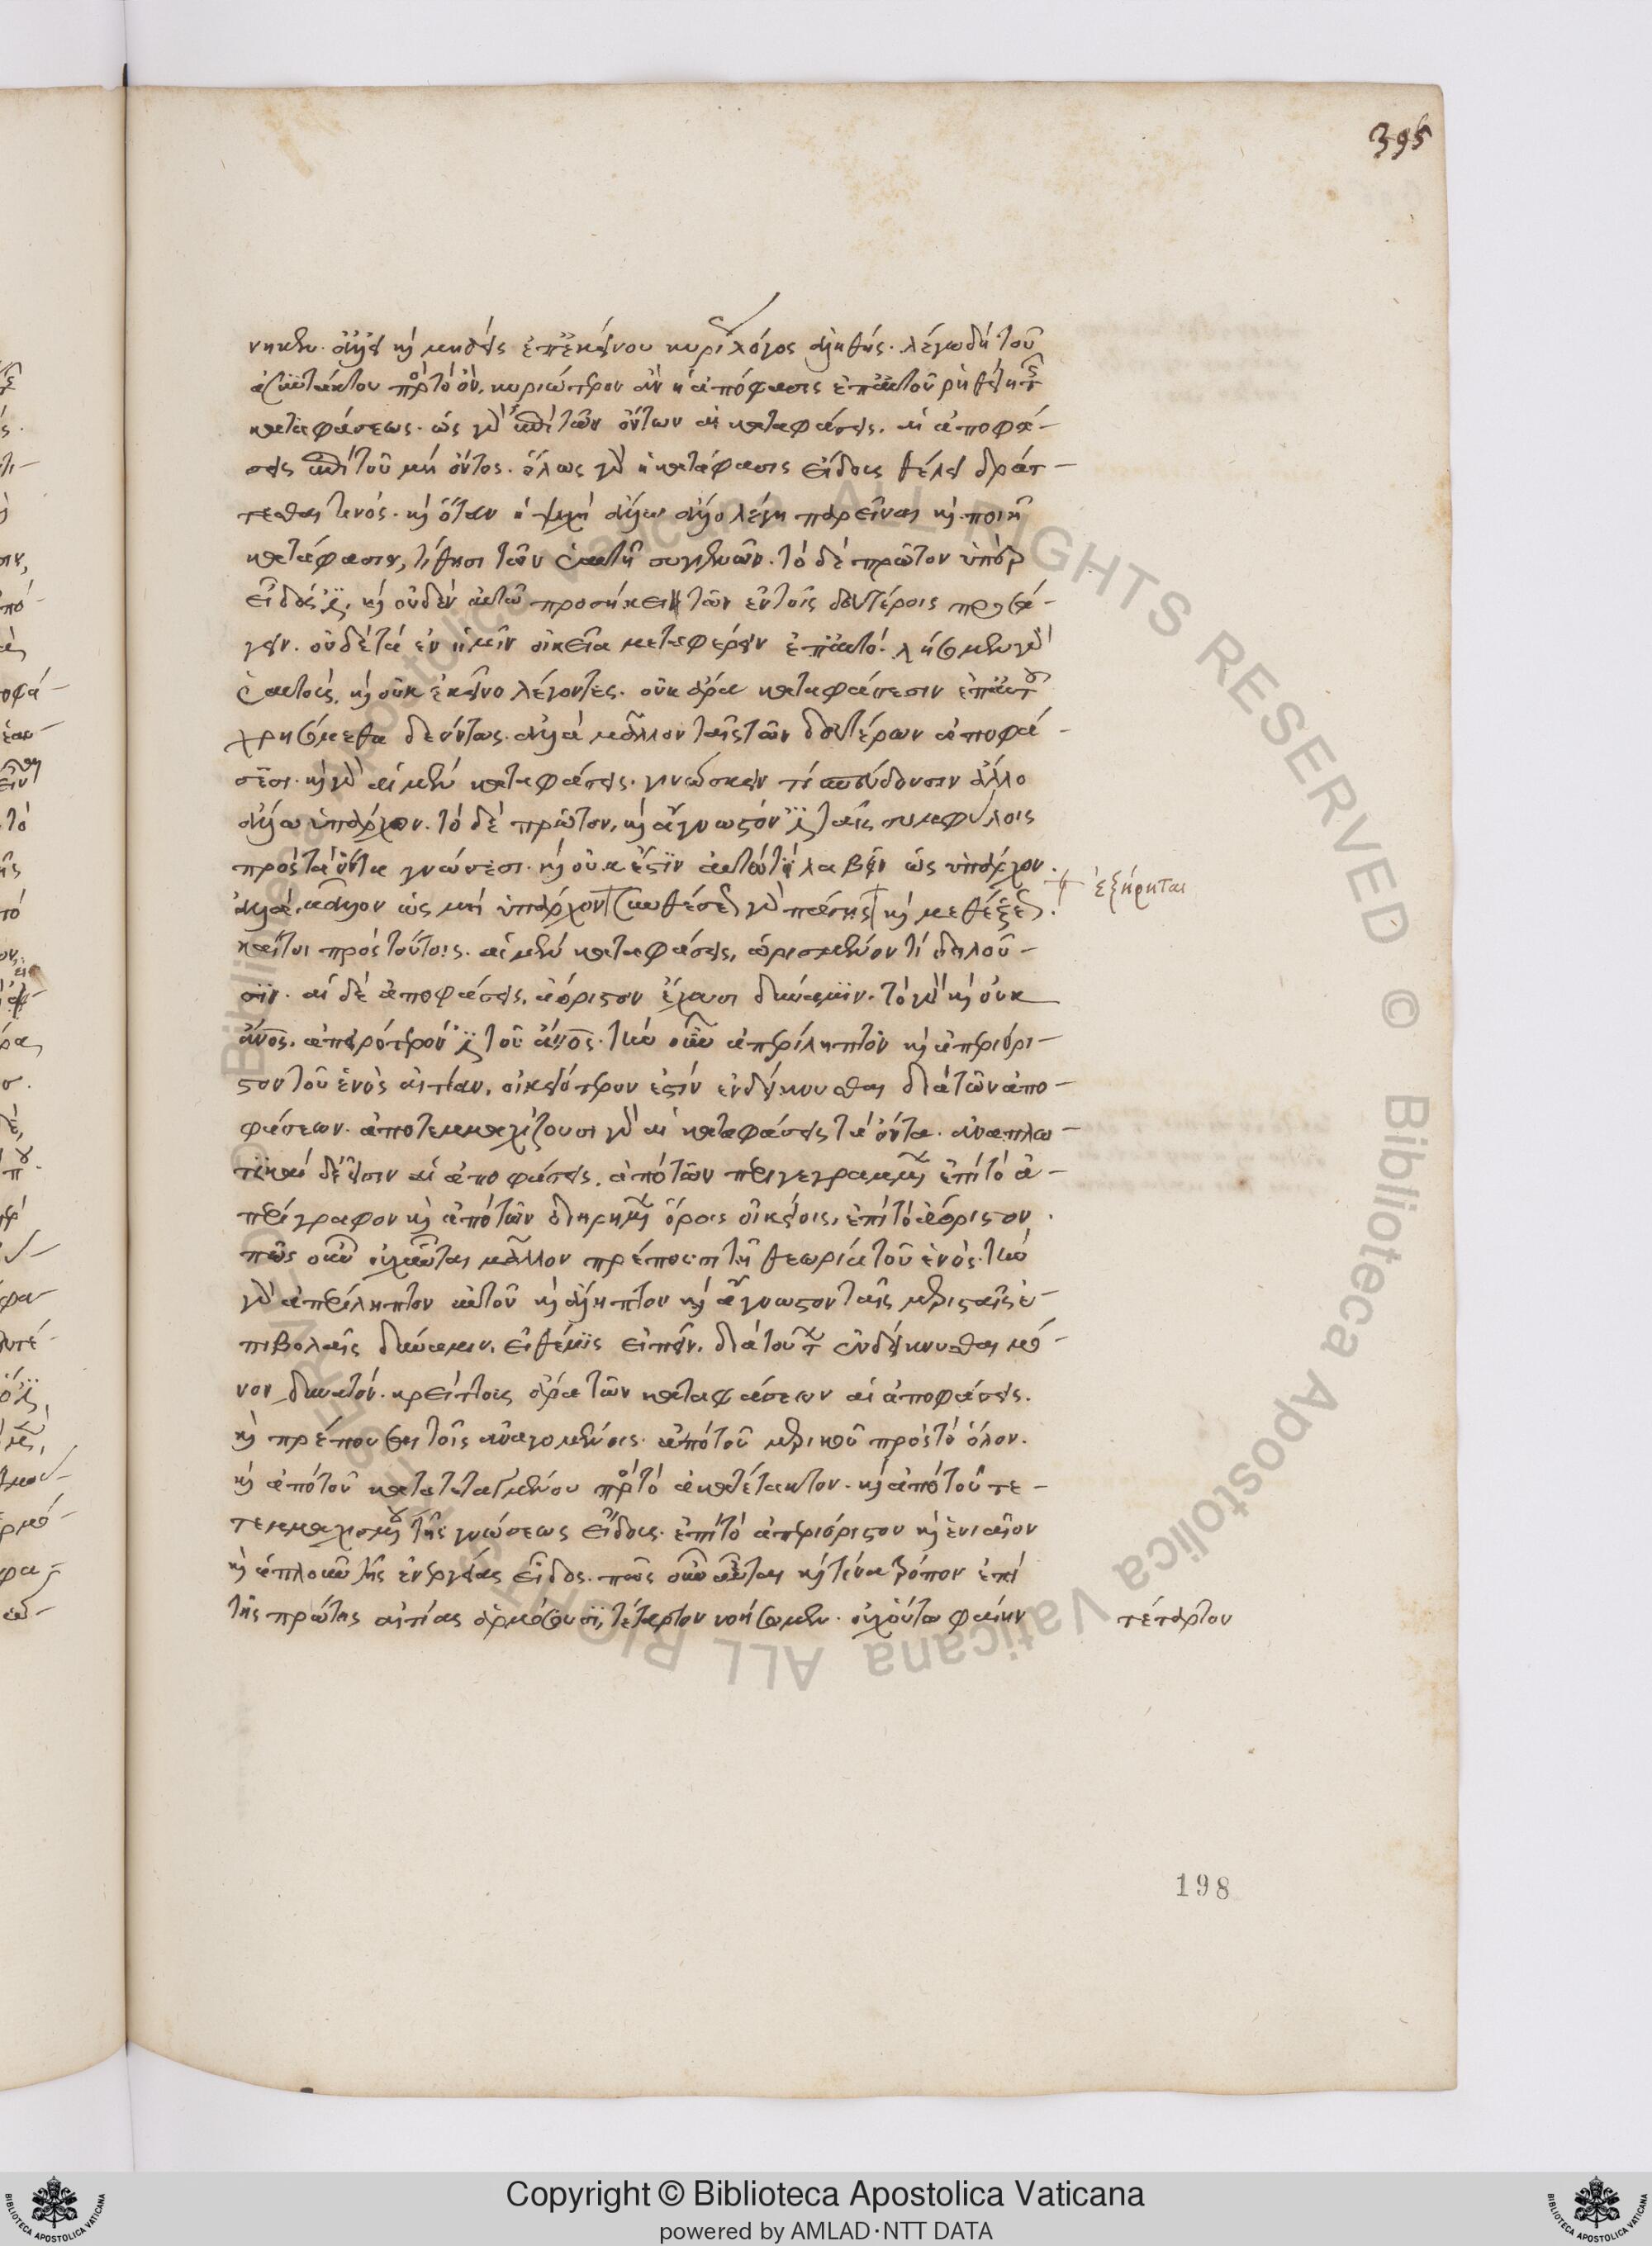 395
νηκεν. ἀλλ' εἰ καὶ μηδεὶς ἐπ' ἐκείνου κυρίως λόγος ἀληθής. λέγω δὴ τοῦ
ἀσυντάκτου πρὸς τὸ ὄν, κυριώτερον ἂν ἡ ἀπόφασις ἐπ' αὐτοῦ ῥηθείη τῆς
καταφάσεως. ὡς γὰρ κατὰ τῶν ὄντων αἱ καταφάσεις, αἱ ἀποφά-
σεις κατὰ τοῦ μὴ ὄντος. ὅλως γὰρ ἡ κατάφασις εἴδους θέλει δράτ-
τεσθαι τινός. καὶ ὅταν ἡ ψυχὴ ἄλλω ἄλλο λέγη παρεῖναι καὶ ποιῆ
κατάφασιν, τίθησι τῶν ἑαυτῆ συγγενῶν. τὸ δὲ πρῶτον ὑπὲρ
εἶδός ἐστι, καὶ οὐδὲν αὐτῶ προσήκει τῶν ἐν τοῖς δευτέροις προσά-
γειν. οὐδὲ τὰ ἐν ἡμῖν οἰκεῖα μεταφέρειν ἐπ' αὐτό. λήσομεν γὰρ
ἑαυτούς, καὶ οὐκ ἐκεῖνο λέγοντες. οὐκ ἄρα καταφάσεσιν ἐπ' αὐτοῦ
χρησόμεθα δεόντως. ἀλλὰ μᾶλλον ταῖς τῶν δευτέρων ἀποφά-
σεσι. καὶ γὰρ αἱ μὲν καταφάσεις. γινώσκειν τι σπεύδουσιν ἄλλο
ἄλλω ὑπάρχον. τὸ δὲ πρῶτον, καὶ ἄγνωστόν ἐστι ταῖς συμφύλοις
πρὸς τὰ ὄντα γνώσεσι. καὶ οὐκ ἔστιν αὐτῶ τι λαβεῖν ὡς ὑπάρχον.
ἀλλὰ μᾶλλον ὡς μὴ ὑπάρχον. συνθέσεως γὰρ πάσης καὶ μεθέξεως.
ἐξήρηται
καίτοι πρὸς τούτοις. αἱ μὲν καταφάσεις, ὡρισμένον τι δηλοῦ-
σιν. αἱ δὲ ἀποφάσεις, ἀόριστον ἔχουσι δύναμιν. τὸ γὰρ καὶ οὐκ
ἄνος. ἀπειρότερόν ἐστι τοῦ ἄνος. τὴν οὖν ἀπερίληπτον καὶ ἀπεριόρι-
στον τοῦ ἑνὸς αἰτίαν, οἰκειότερον ἐστὶν ἐνδείκνυσθαι διὰ τῶν ἀπο-
φάσεων. ἀποτεμαχίζουσι γὰρ αἱ καταφάσεις τὰ ὄντα. ἀναπλω-
τικαὶ δέ εἰσιν αἱ ἀποφάσεις, ἀπὸ τῶν περιγεγραμμένων ἐπὶ τὸ ἀ-
περίγραφον καὶ ἀπὸ τῶν διηρημένων ὅροις οἰκείοις, ἐπὶ τὸ ἀόριστον.
πῶς οὖν οὐχ αὗται μᾶλλον πρέπουσι τῆ θεωρία τοῦ ἑνός. τὴν
γὰρ ἀπερίληπτον αὐτοῦ καὶ ἄληπτον καὶ ἄγνωστον ταῖς μερισταῖς ἐ-
πιβολαῖς δύναμιν, εἰ θέμις εἰπεῖν, διὰ τούτων ἐνδείκνυσθαι μό-
νον δυνατόν. κρείττους ἄρα τῶν καταφάσεων αἱ ἀποφάσεις.
καὶ πρέπουσαι τοῖς ἀναγομένοις. ἀπὸ τοῦ μερικοῦ πρὸς τὸ ὅλον.
καὶ ἀπὸ τοῦ κατατεταγμένου πρὸς τὸ ἀκατάτακτον. καὶ ἀπὸ τοῦ τε-
τεμαχισμένου τῆς γνώσεως εἴδους. ἐπὶ τὸ ἀπεριόριστον καὶ ἑνιαῖον
καὶ ἁπλοῦν τῆς ἐνεργείας εἶδος. πῶς οὖν αὗται καὶ τίνα τρόπον ἐπὶ
τῆς πρώτης αἰτίας ἁρμόσουσι, τέταρτον νοήσωμεν. οὐχ οὕτω φαίην
τέταρτον
198